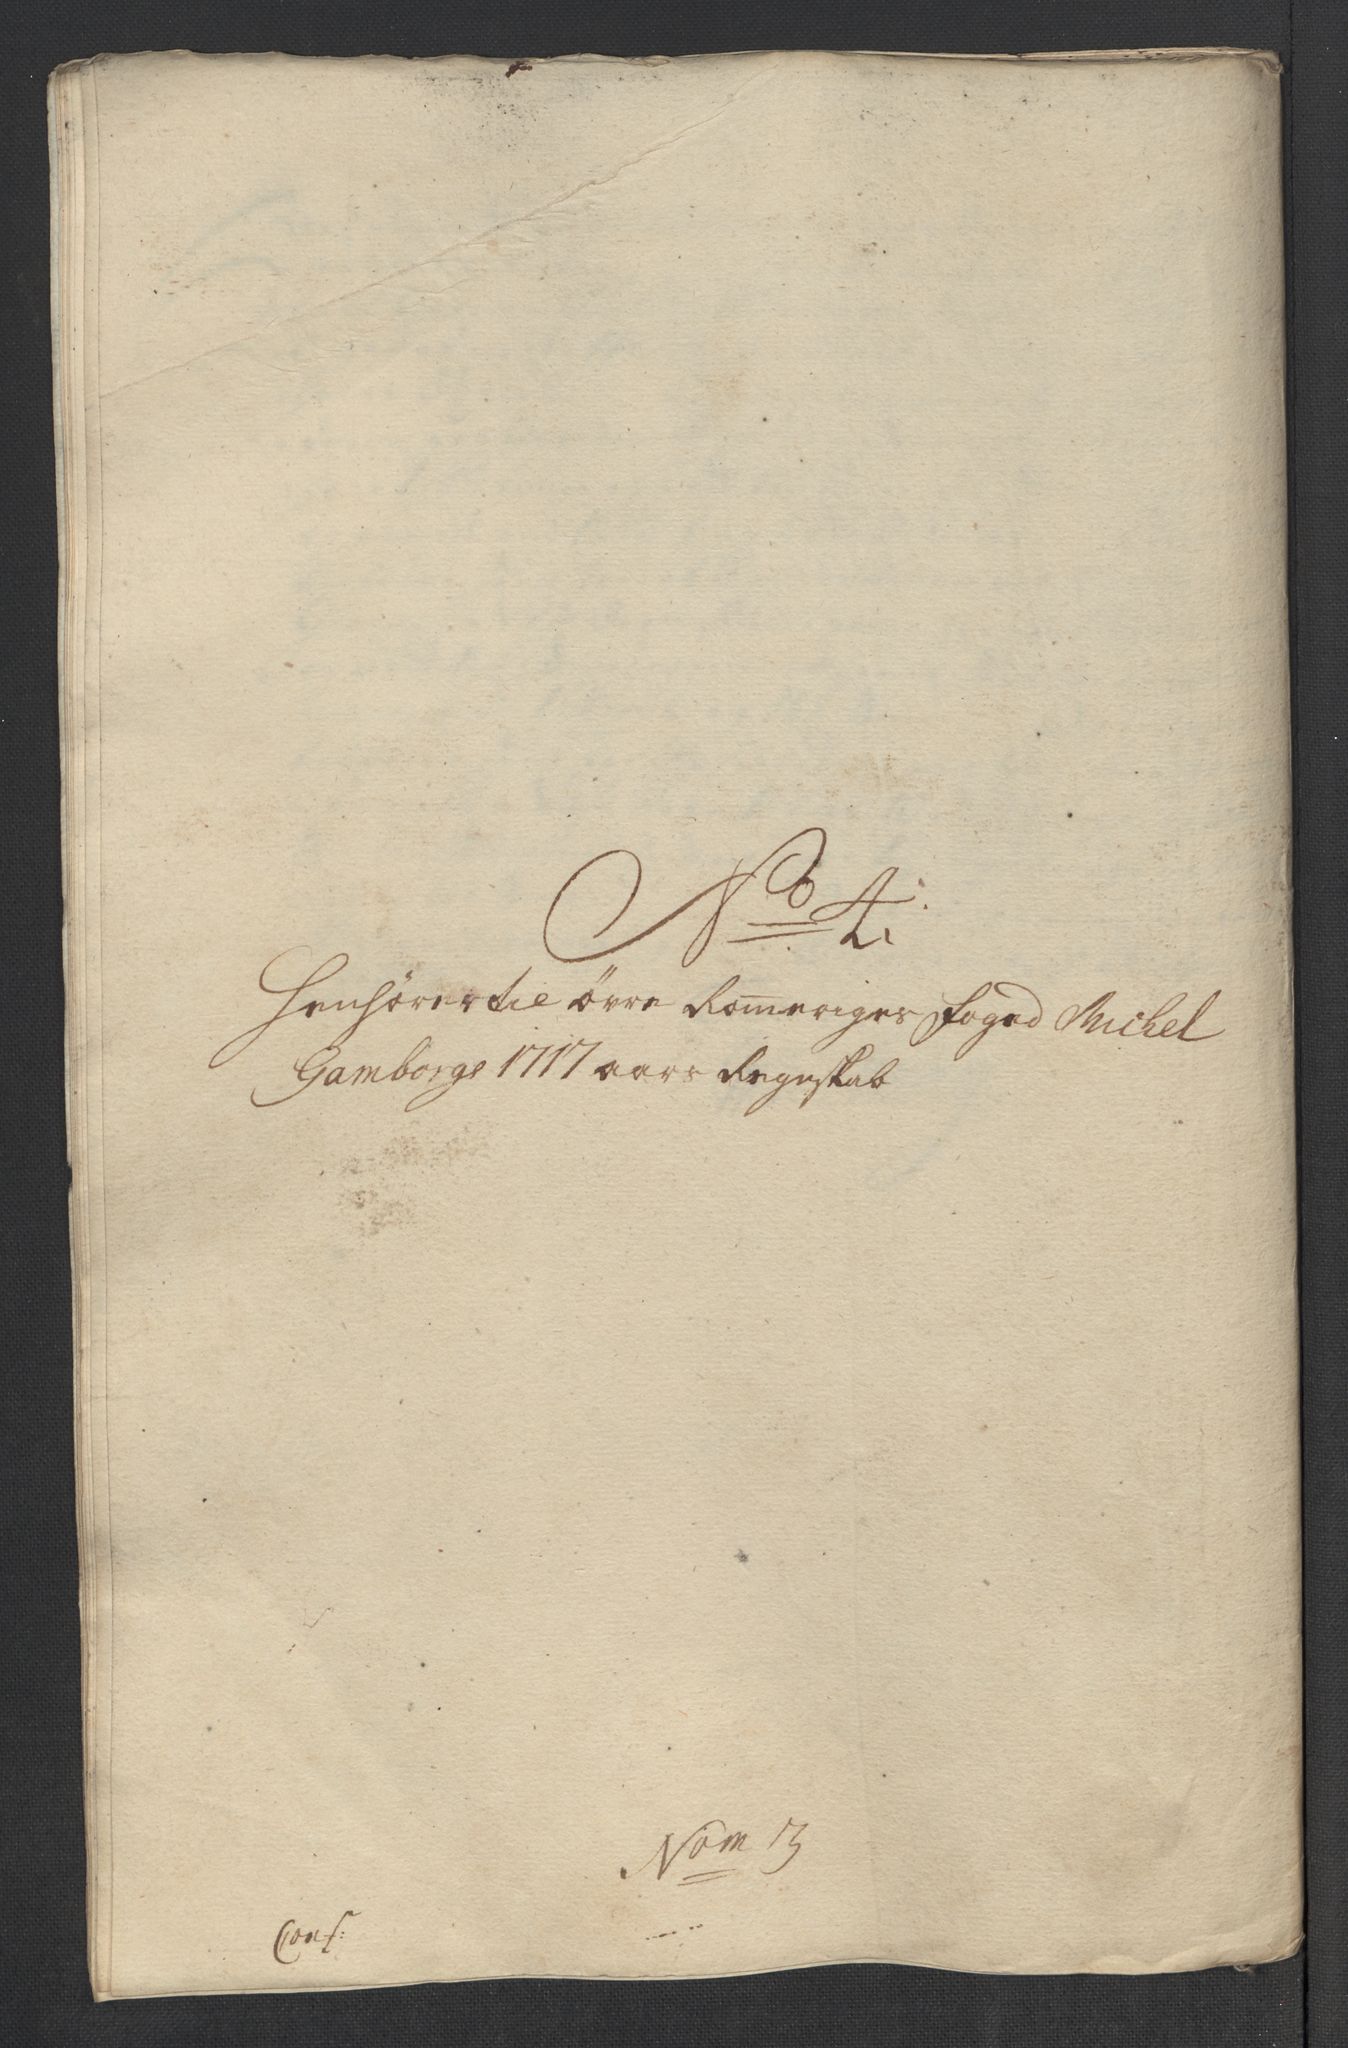 No 4:
Henhörer til övre Romeriges foged Michel
Gamborgs 1717 aars Regnskab
Nom 13
Conf: